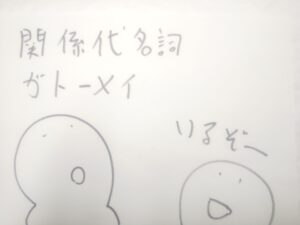 関係代名詞
ガトーメイ
いるぞー